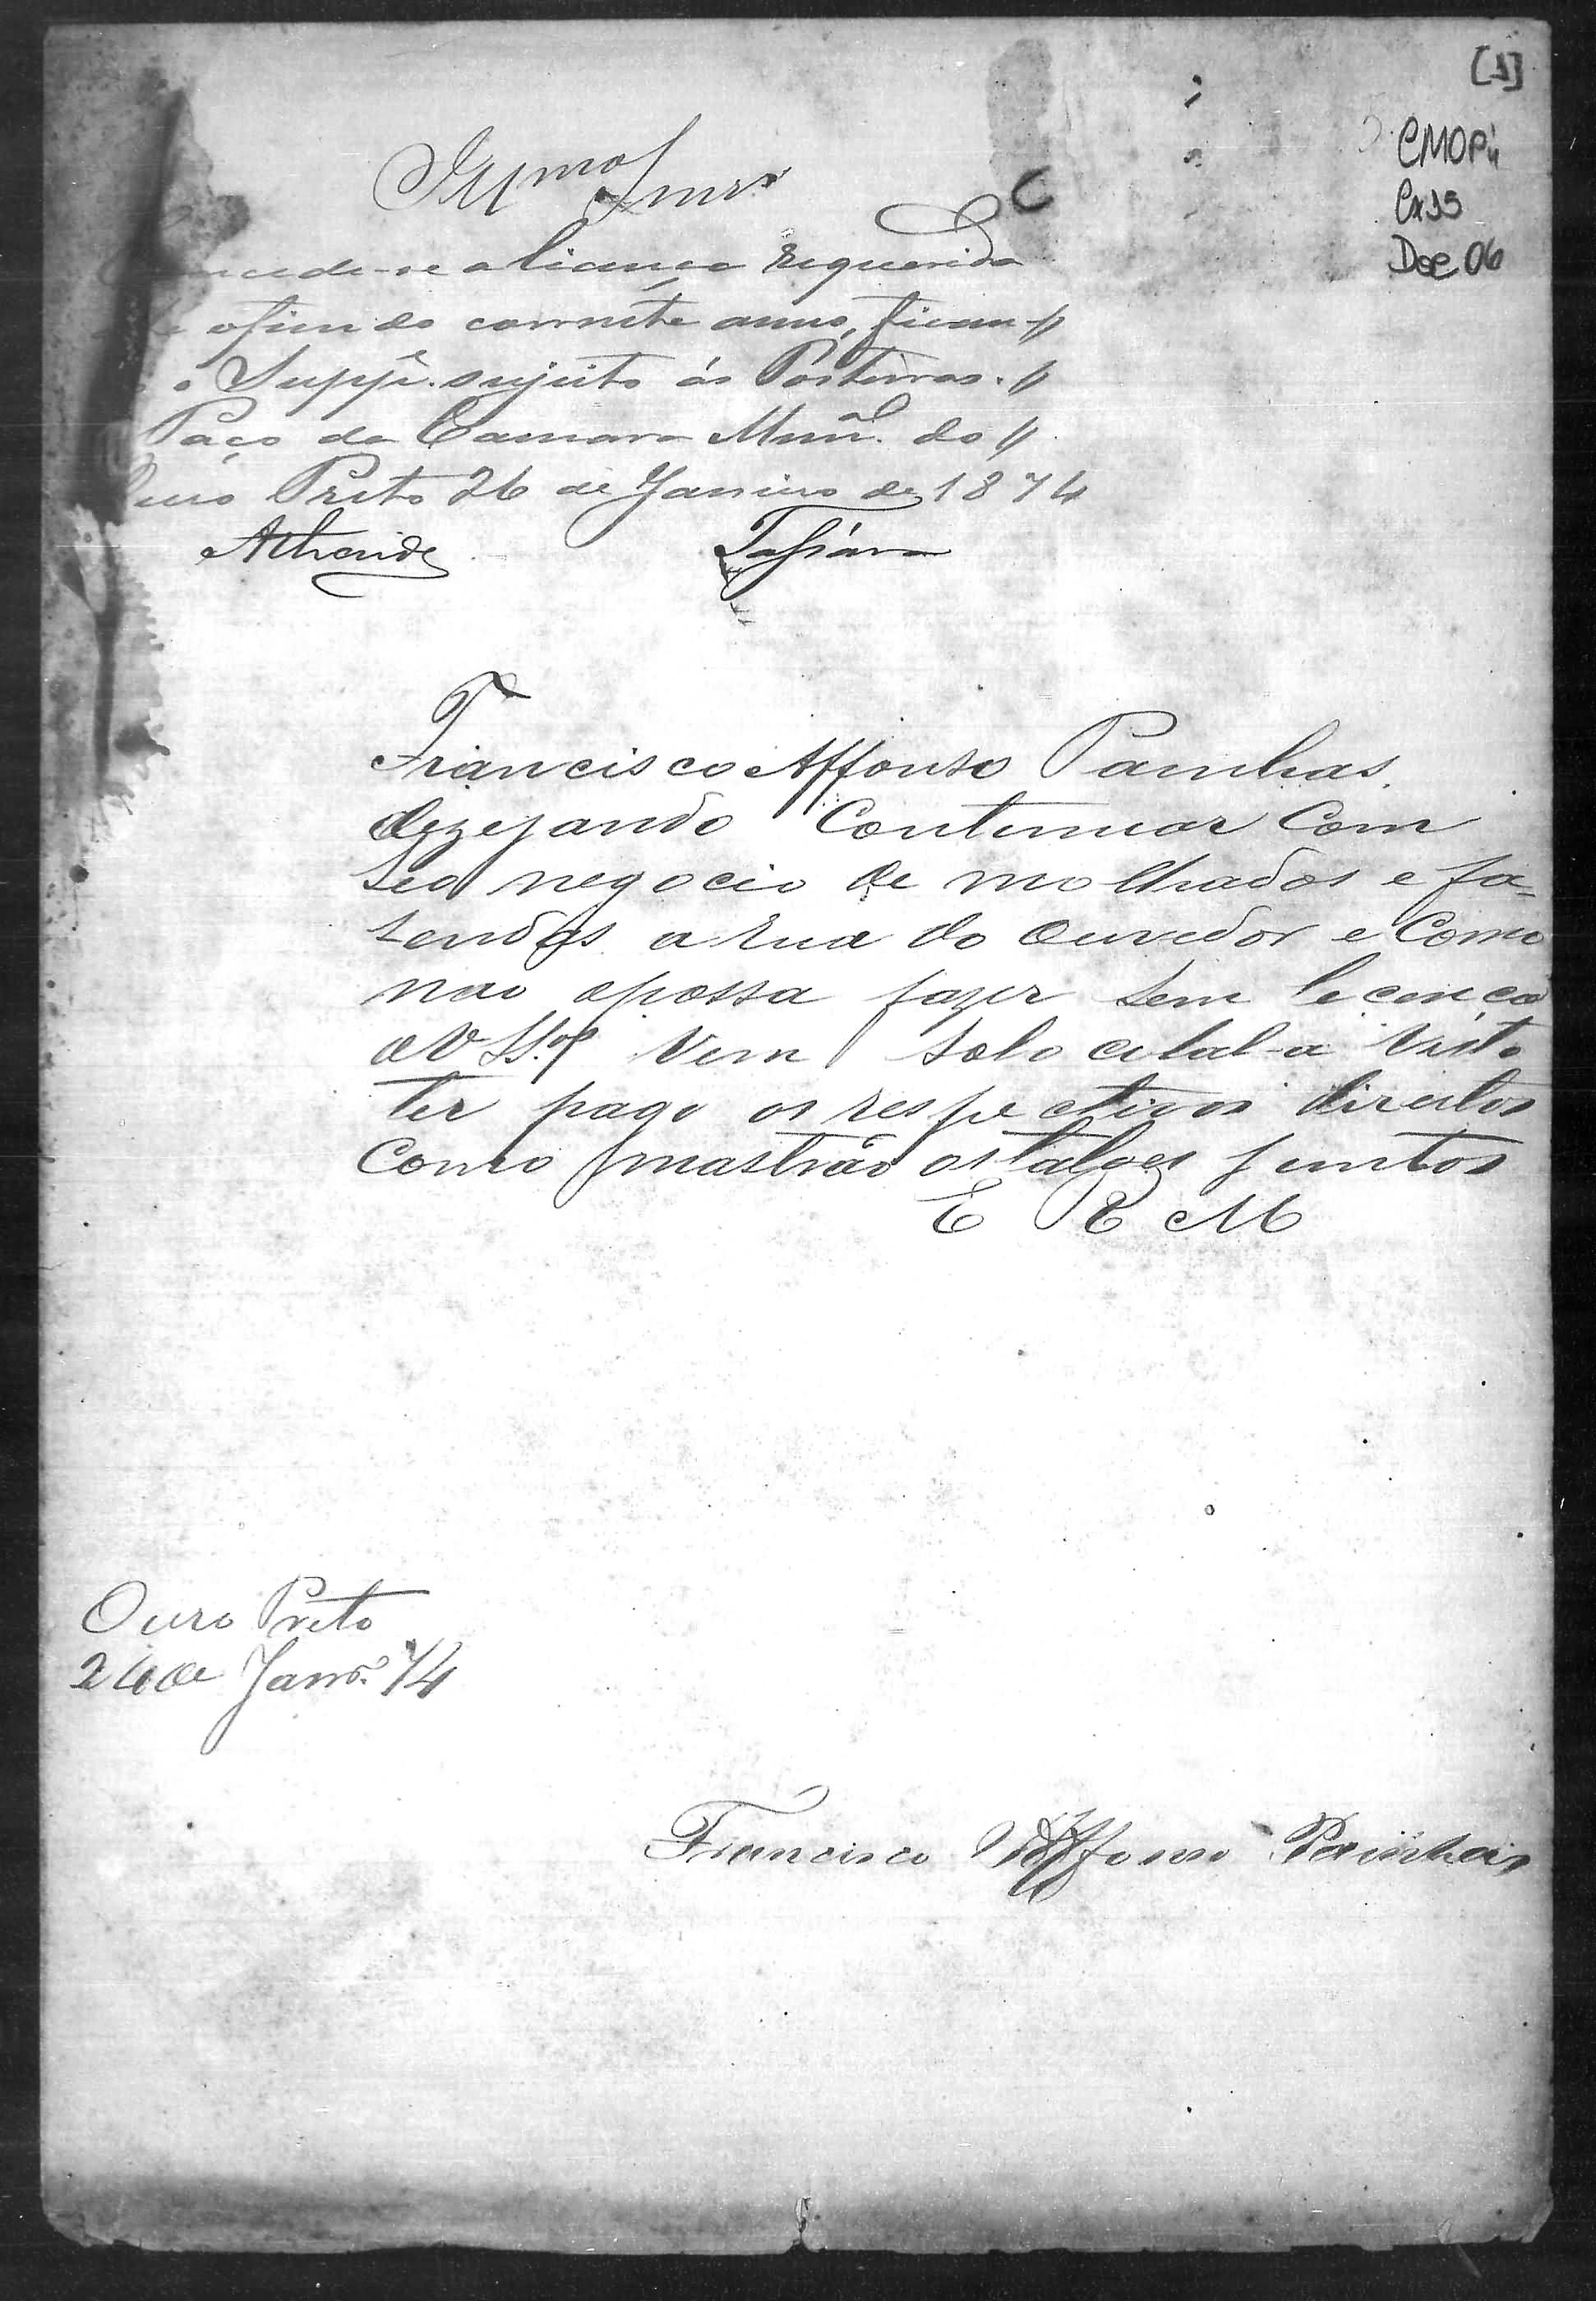 [1]
CMOP
Cx 35
Doc 06
Illmos Snres
-se a licença requerida
o fim do corrente anno, fican
o Suppe. sujeito ás Posturas.
Paço da Camara Munal. do
Ouro Preto 26 de Janeiro de 1874
Francisco Affonso Painhas.
dezejando Continuar Com
seo negocio de molhados e fa=
sendas a rua do Ouvidor e Como
não o possa fazer sem licença
de V. SSas. Vem solocital-a Visto
ter pago os respectivos direitos
Como mostrão os talões juntos
E R M
Ouro Preto
26 de Janro. 74
Francisco Affonso Painhas